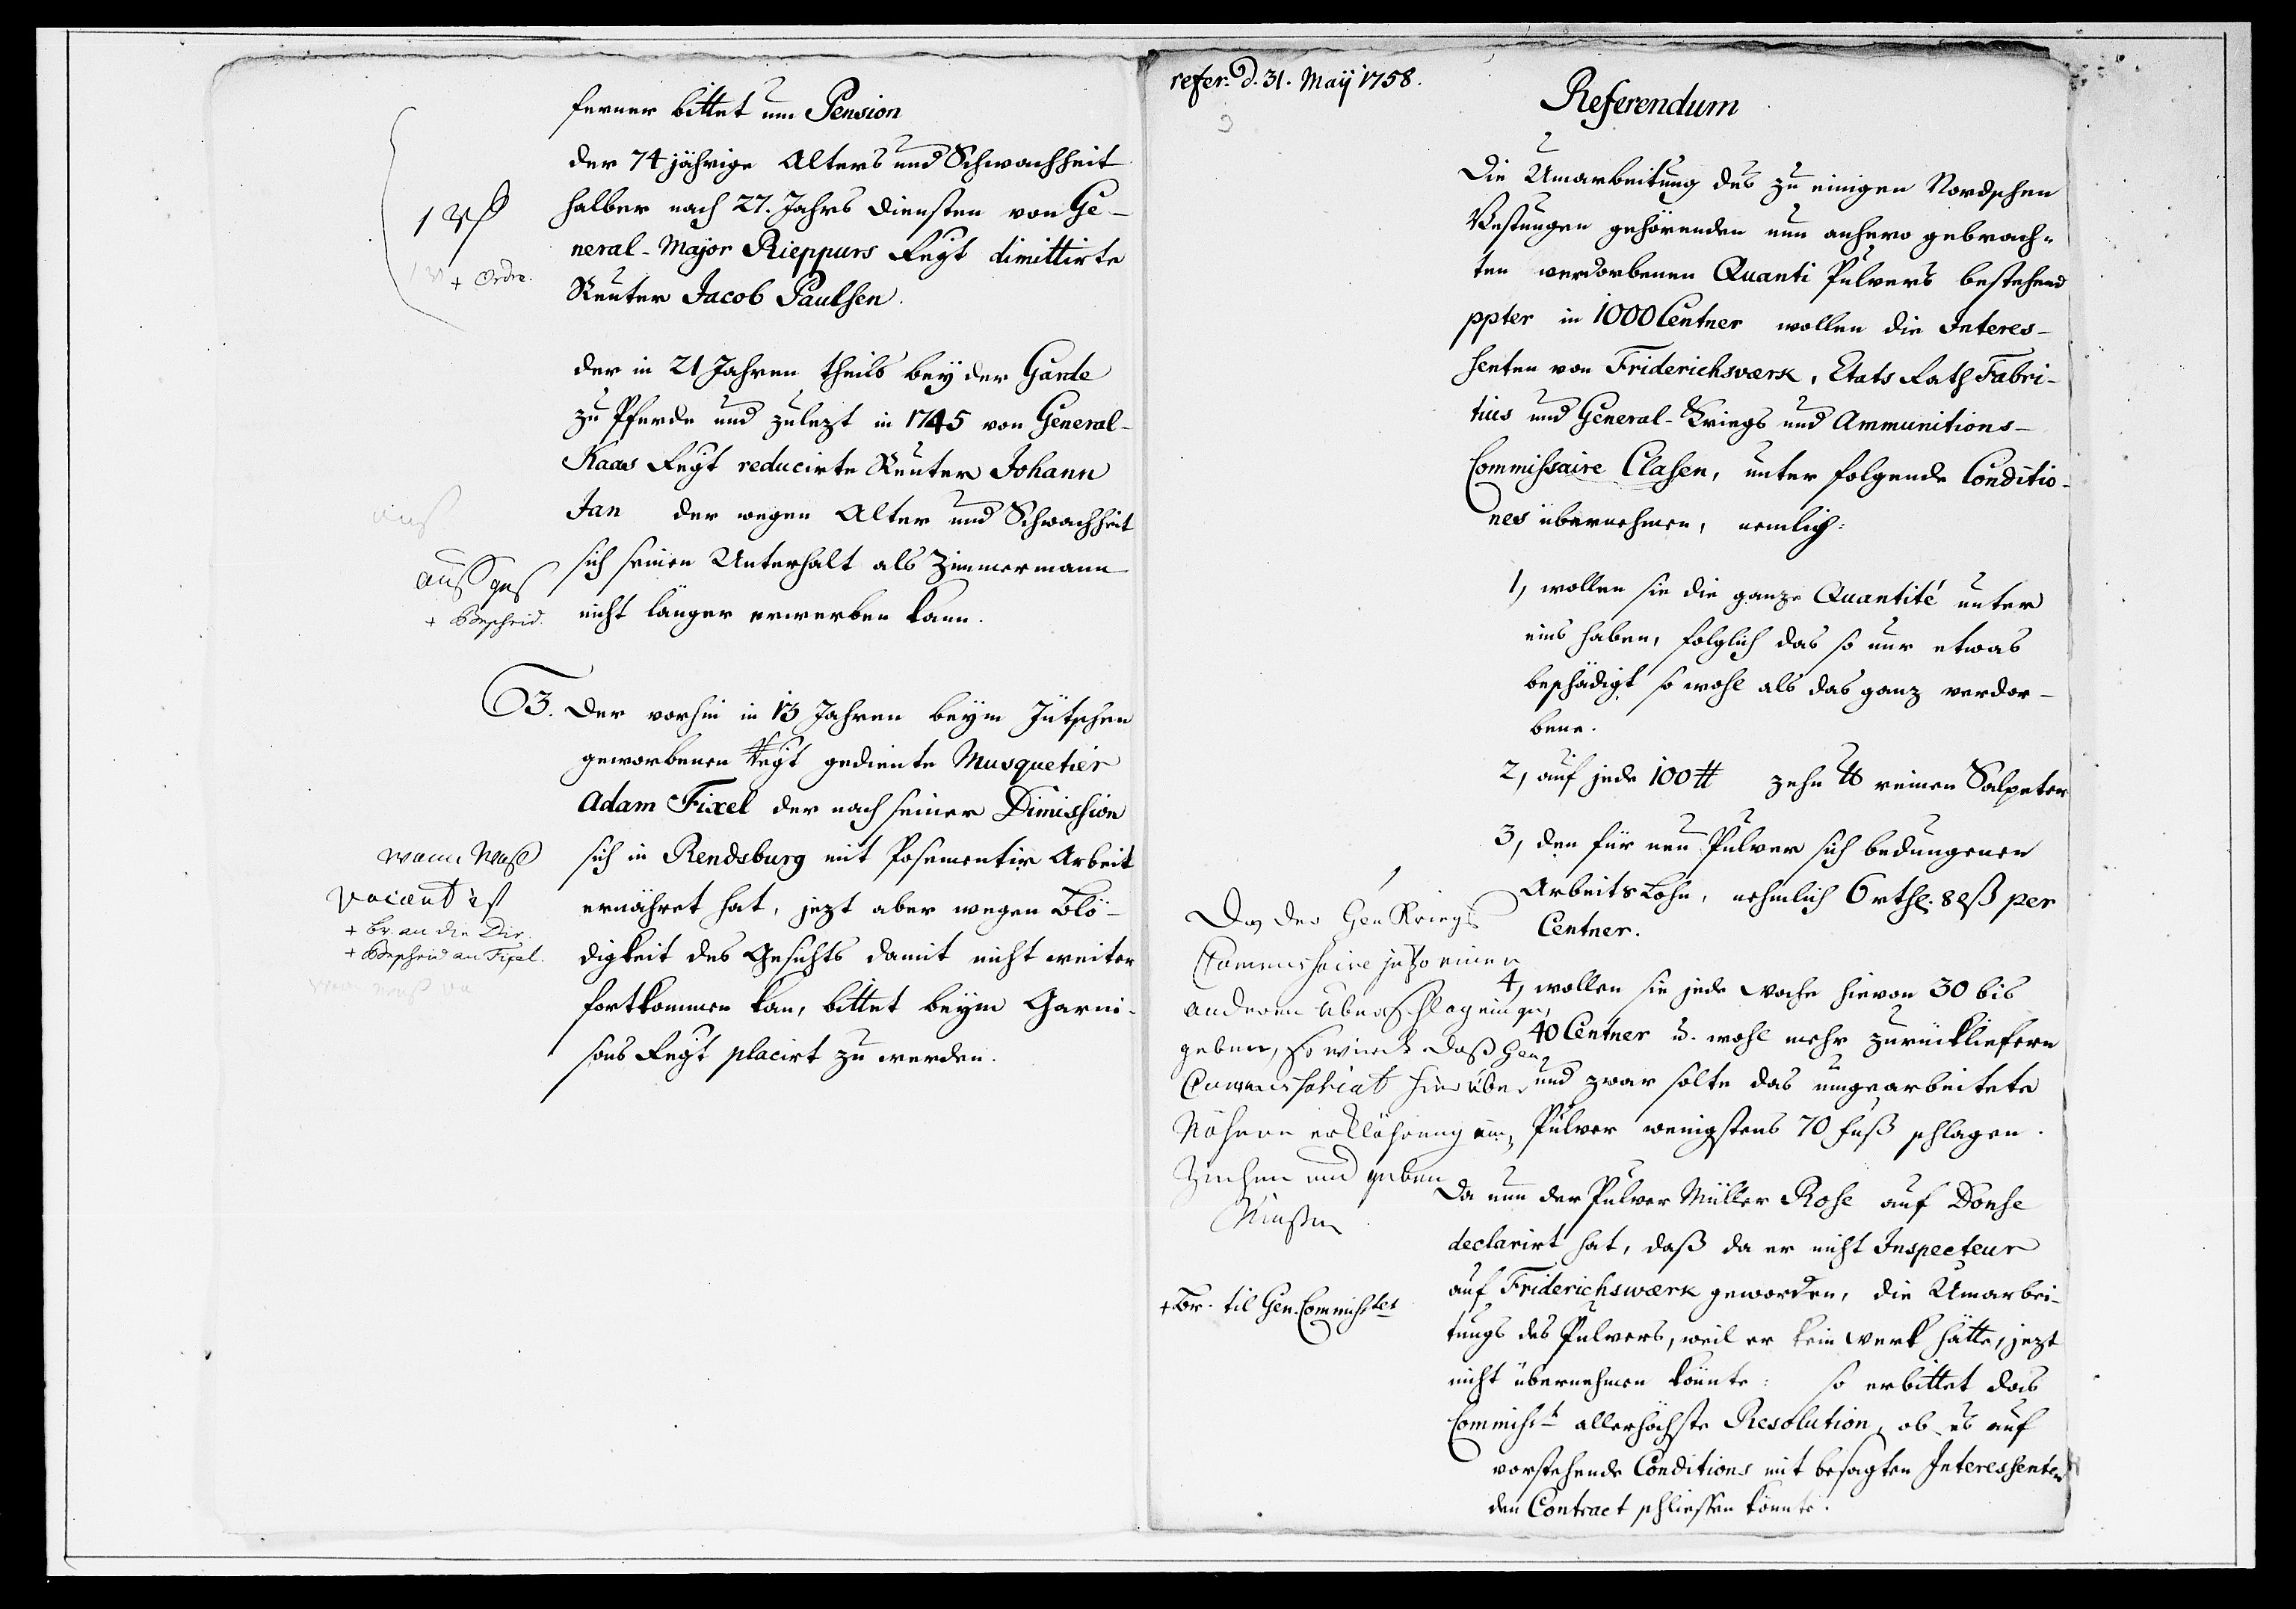 ferner bittet um Pension
der 74 jährige Alters und Schwachheit
halber nach 27. Jahrs Diensten von Ge-
neral-Major Rieppurs Regt dimittirte
Reuter Jacob Paulsen.
+ Ordre.
der in 21 Jahren theils beÿ der Garde
zu Pferde und zulezt in 1745 von General-
Kaas Regt reducirte Reuter Johann
Jan der wegen Alter und Schwachheit
sich seinen Unterhalt als Zimmermann
nicht länger erwerben kann.
+ Bescheid.
3. Der vorhin in 13 Jahren beÿm Jütschen
geworbenen Regt gediente Musquetier
Adam Fixel der nach seiner Dimission
sich in Rendsburg mit Posementir Arbeit
ernähret hat, jezt aber wegen Blö-
digkeit des Gesichts damit nicht weiter
fortkommen kan, bittet beÿm Garni-
sons Regt placirt zu werden.
wann waß
vacant ist
+ Br. an die Dir.
+ Bescheid an Fixel.
refer. d. 31. Maÿ 1758.
Referendum
Die Umarbeitung des zu einigen Nordschen
Vestungen gehörenden nun anhero gebrach-
ten verdorbenen Quanti Pulvers bestehend
ppter in 1000 Centner wollen die Interes-
senten von Friderichsværk, Etats Rath Fabri-
tius und General-Kriegs und Ammunitions-
Commissaire Classen, unter folgende Conditio-
nes übernehmen, nemlich:
1, wollen sie die ganze Quantité unter
eins haben, folglich das so nur etwas
beschädigt so wohl als das ganz verdor-
bene.
2, auf jede 100 ℔ zehn ℔ reinen Salpeter
3, den für neu Pulver sich bedungenen
Arbeits Lohn, nehmlich 6 rthl. 8 ß per
Centner.
4, wollen sie jede Woche hievon 30 bis
40 Centner u. wohl mehr zurückliefern
und zwar solte das umgearbeitete
Pulver wenigstens 70 fuß schlagen.
Da nun der Pulver Müller Rose auf Donse
declarirt hat, daß da er nicht Inspecteur
auf Friderichswærk geworden, die Umarbei-
tungs des Pulvers, weil er kein Werk hätte, jezt
nicht übernehmen könnte: so erbittet das
Commiss.t allerhöchste Resolution, ob es auf
vorstehende Conditions mit besagten Interessenten
den Contract schliessen könnte.
Da der Gen Kriegs
Commissaire jetzo einen
anderen überschlag einge
geben, so wirdt daß Gen
Commissariat hierüber
Nähere erklährung ein
Ziehen und geben
Müssen
+ Br. til Gen. Commiss.tet